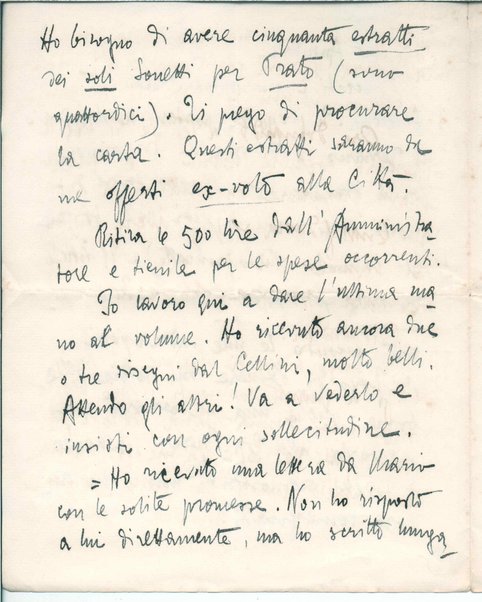 Ho bisogno di avere cinquanta estratti
dei soli Sonetti per Prato (sono
quattordici). Ti prego di procurare
la carta. Questi estratti saranno da
me offerti ex-voto alla Città.
Ritira le 500 lire dall'Amministra-
tore e tienile per le spese occorrenti.
Io lavoro qui a dare l'ultima ma-
no al volume. Ho ricevuto ancora due
o tre disegni dal Cellini, molto belli.
Attendo gli altri! Va a vederlo e
insisti con ogni sollecitudine.
= Ho ricevuto una lettera da Mario
con le solite promesse. Non ho risposto
a lui direttamente, ma ho scritto lunga